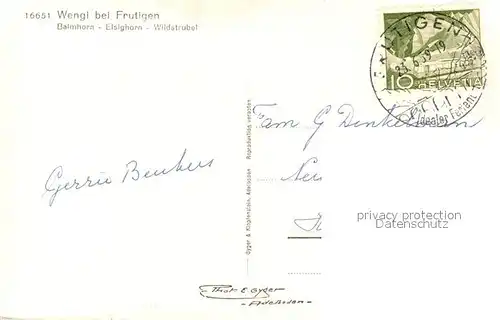 16651 Wengi bei Frutigen
Balmhorn - Elsighorn - Wildstrubel
FRUTIGEN
10 HELVETIA
Idealer Ferienort
Fam G Denkelman
Gerrie Beukers
Neu
privacy protection
www.ansichtskartenversand.com
Gyger & Klopfenstein, Adelboden Reproduktion verboten
Phot E Gyger
- Adelboden -